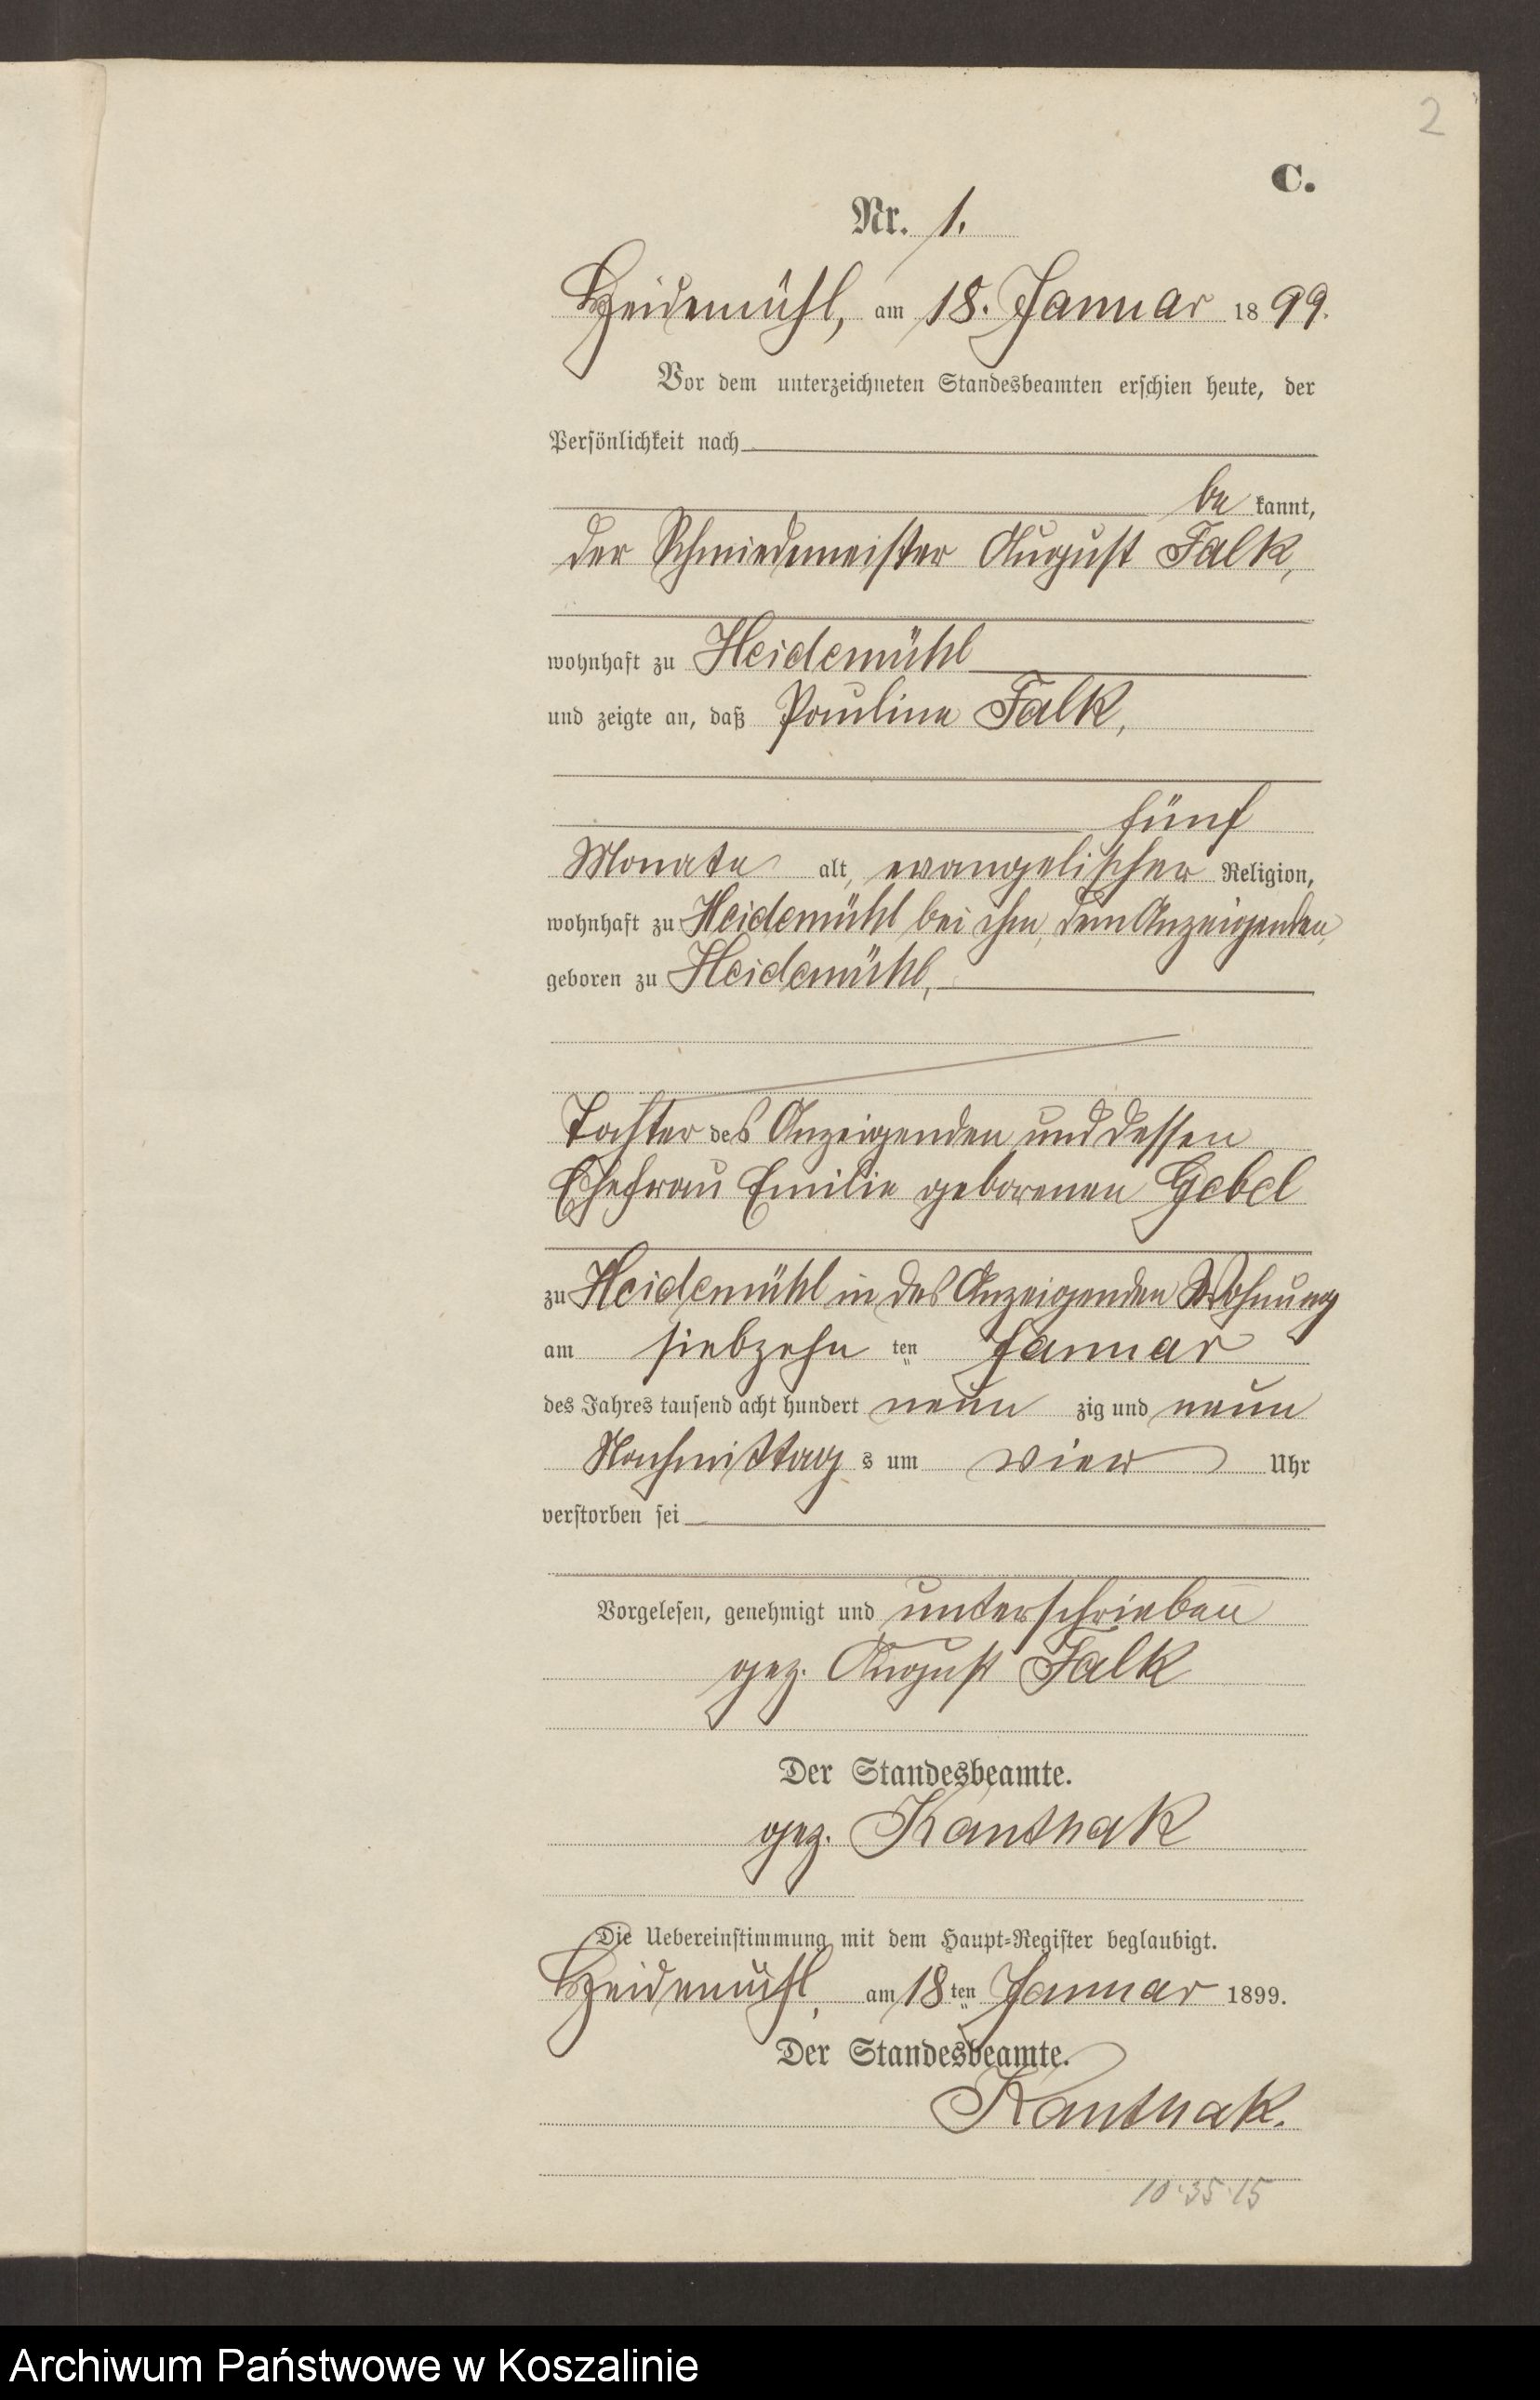 2
C.
Nr. 1.
Heidemühl, am 18. Januar 1899.
Vor dem unterzeichneten Standesbeamten erschien heute, der
Persönlichkeit nach
bekannt,
der Schmiedemeister August Falk,
wohnhaft zu Heidemühl
und zeigte an, daß Pauline Falk,
fünf
Monate alt, evangelischer Religion,
wohnhaft zu Heidemühl bei ihm, dem Anzeigenden,
geboren zu Heidemühl,
Tochter des Anzeigenden und dessen
Ehefrau Emilie geborenen Gebel
zu Heidemühl in des Anzeigenden Wohnung
am siebzehnten Januar
des Jahres tausend acht hundert neunzig und neun
Nachmittags um vier Uhr
verstorben sei
Vorgelesen, genehmigt und unterschrieben
gez. August Falk
Der Standesbeamte.
gez. Kanthak
Die Uebereinstimmung mit dem Haupt-Register beglaubigt.
Heidemühl, am 18ten Januar 1899.
Der Standesbeamte.
Kanthak.
10·35·15
Archiwum Państwowe w Koszalinie